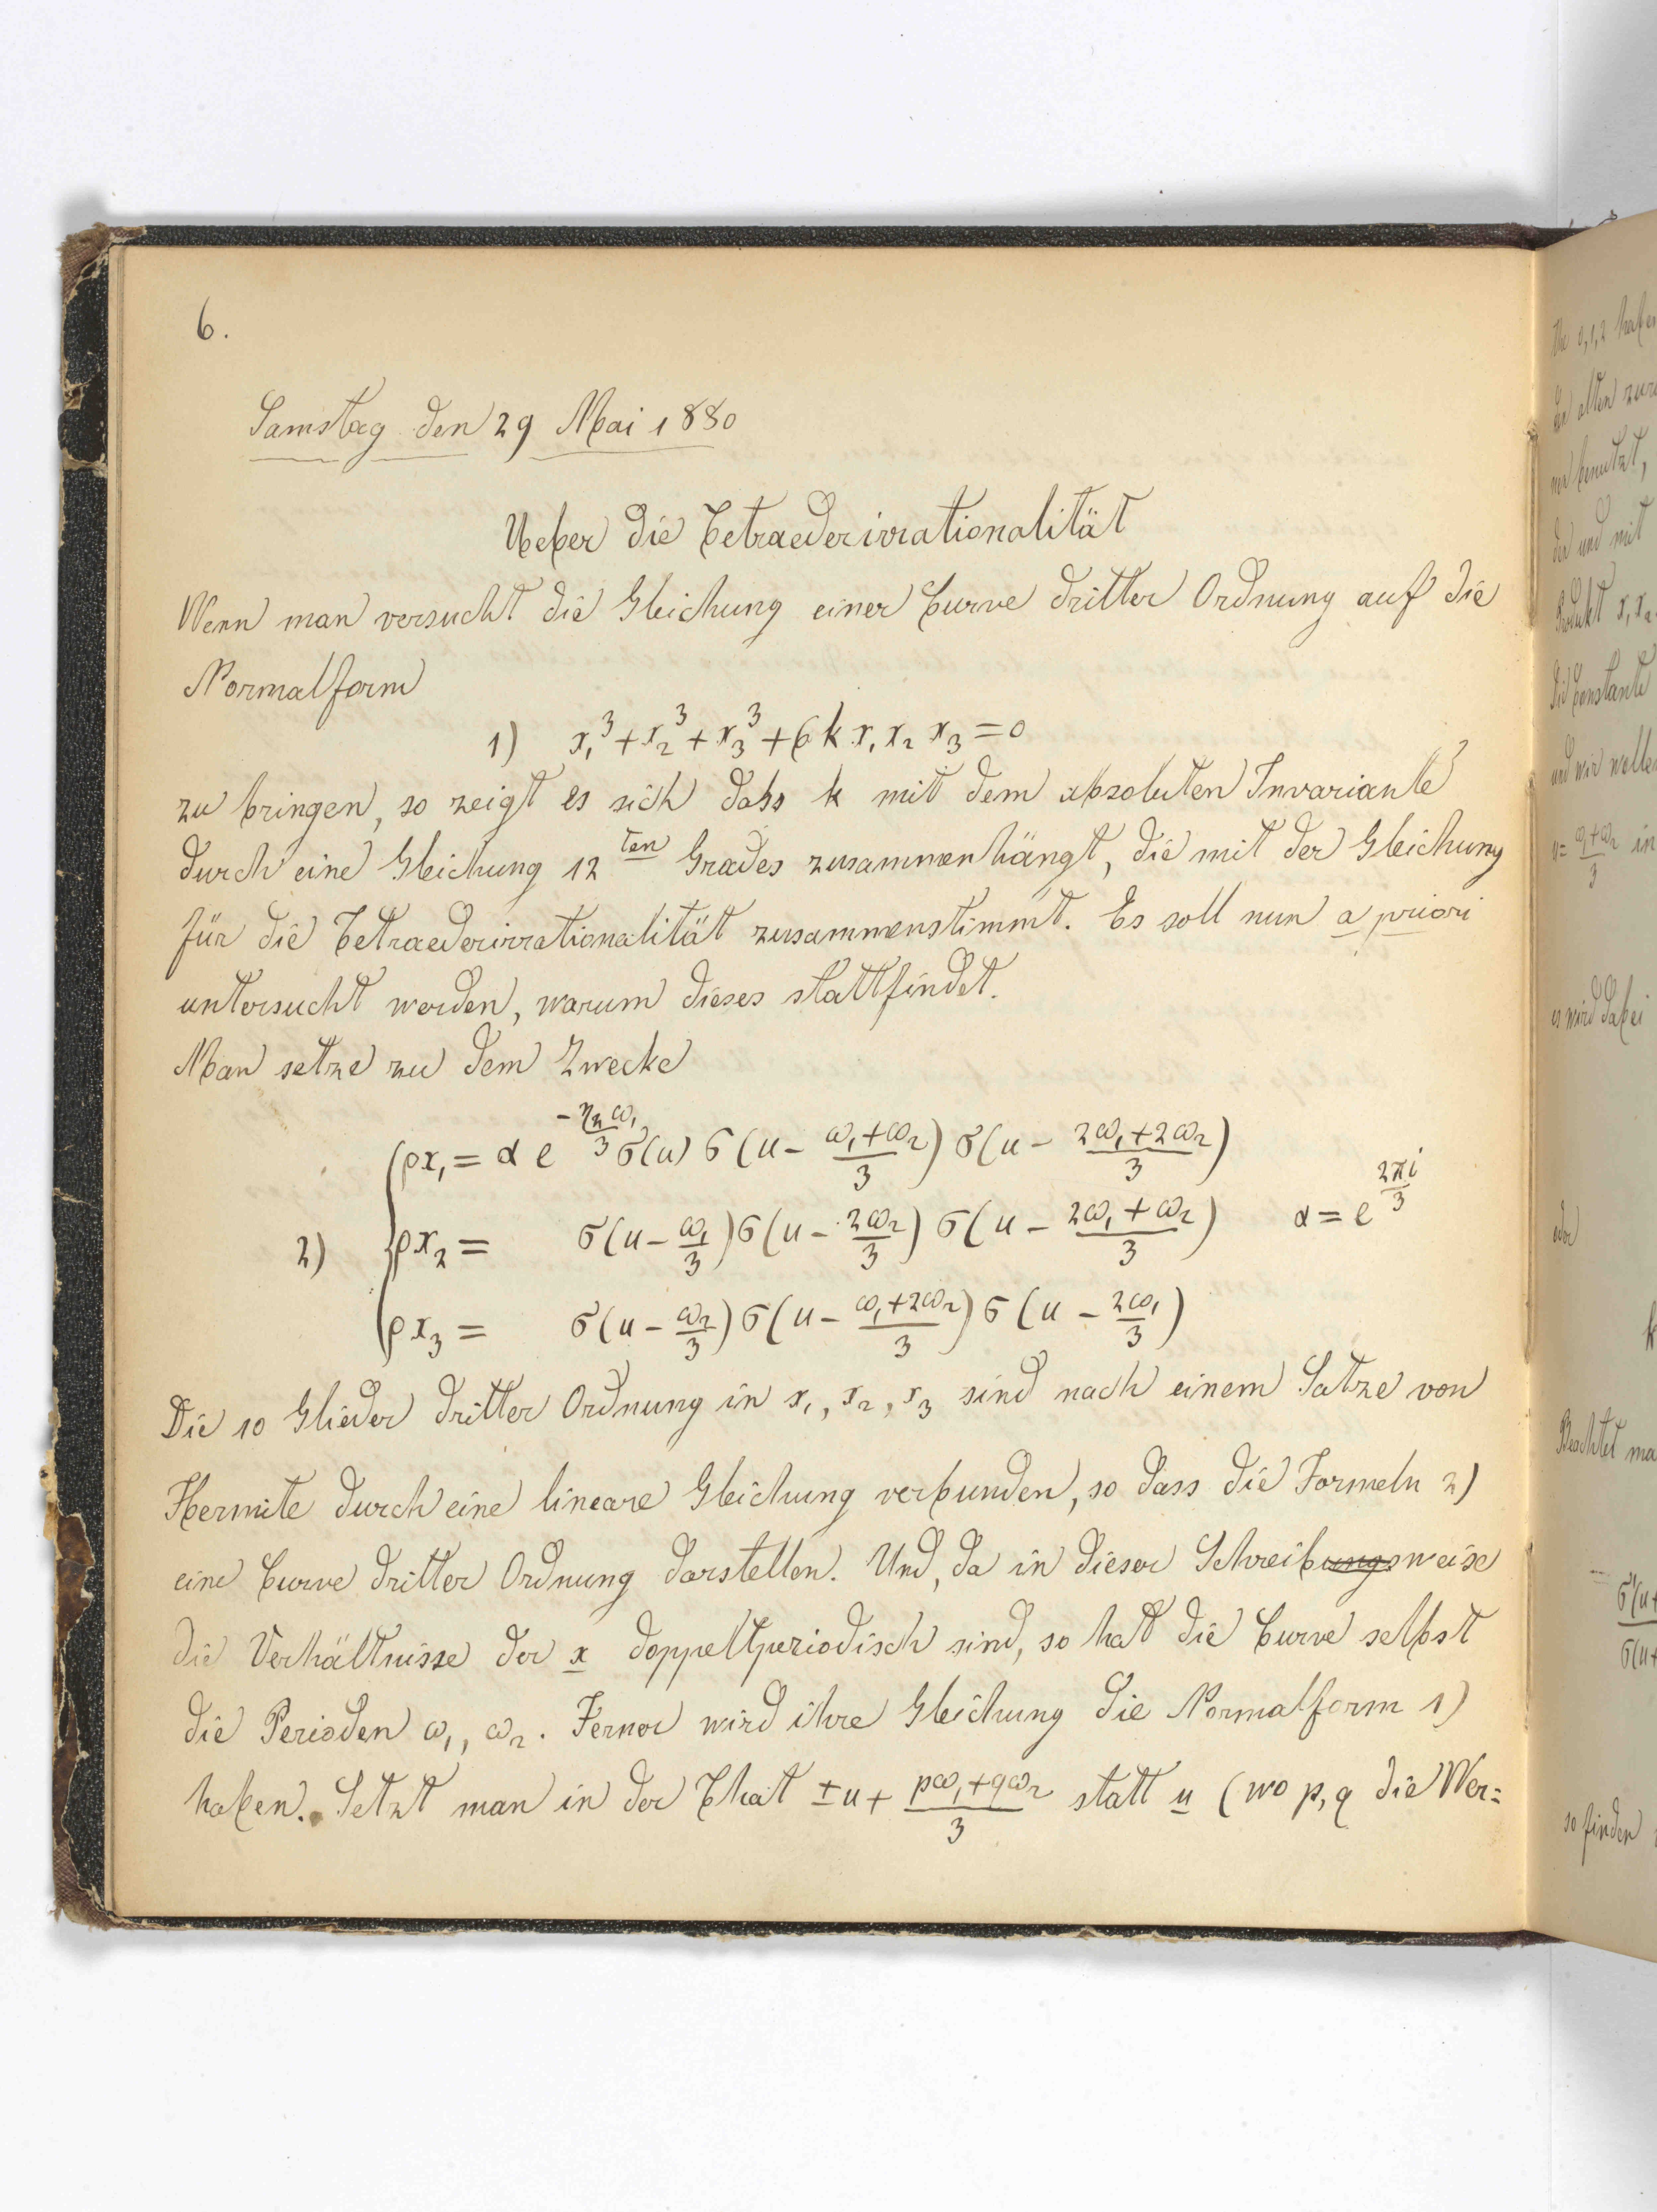 6.
Samstag den 29 Mai 1880
Ueber die Tetraederirrationalität
Wenn man versucht die Gleichung einer Curve dritter Ordnung auf die
Normalform
1) x₁³ + x₂³ + x₃³ + 6 k x₁ x₂ x₃ = 0
zu bringen, so zeigt es sich dass k mit dem absoluten Invariante
durch eine Gleichung 12ten Grades zusammenhängt, die mit der Gleichung
für die Tetraederirrationalität zusammenstimmt. Es soll nun a priori
untersucht werden, warum dieses stattfindet.
Man setze zu dem Zwecke
ρx₁ = α e^(-η₂ω₁/3) σ(u) σ(u - (ω₁+ω₂)/3) σ(u - (2ω₁+2ω₂)/3)
2) ρx₂ = σ(u - ω₁/3) σ(u - 2ω₂/3) σ(u - (2ω₁+ω₂)/3) α = e^(2πi/3)
ρx₃ = σ(u - ω₂/3) σ(u - (ω₁+2ω₂)/3) σ(u - 2ω₁/3)
Die 10 Glieder dritter Ordnung in x₁, x₂, x₃ sind nach einem Satze von
Hermite durch eine lineare Gleichung verbunden, so dass die Formeln 2)
eine Curve dritter Ordnung darstellen. Und, da in dieser Schreibungsweise
die Verhältnisse der x doppeltperiodisch sind, so hat die Curve selbst
die Perioden ω₁, ω₂. Ferner wird ihre Gleichung die Normalform 1)
haben. Setzt man in der That ±u + (pω₁+qω₂)/3 statt u (wo p, q die Wer=
the 0,1,2 haben
und wir wollen
es wird dabei
oder
Beachtet ma
so finden